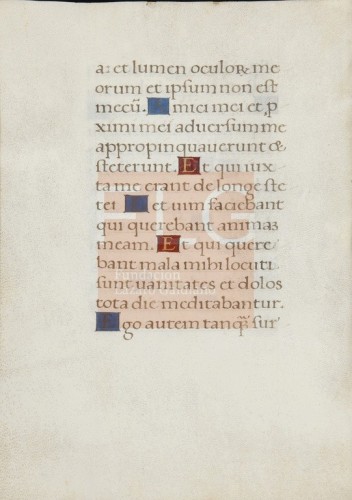 a: et lumen oculoR me
orum et ipsum non est
mecũ. A mici mei et p
ximi mei adversum me
appropinquaverunt &
steterunt. Et qui iux
ta me erant de longe ste
te et vim faciebant
qui querebant animaz
meam. Et qui quere
bant mala mihi locuti
sunt vanitates et dolos
tota die meditabantur.
Ego autem tanq̃ sur
Fundación